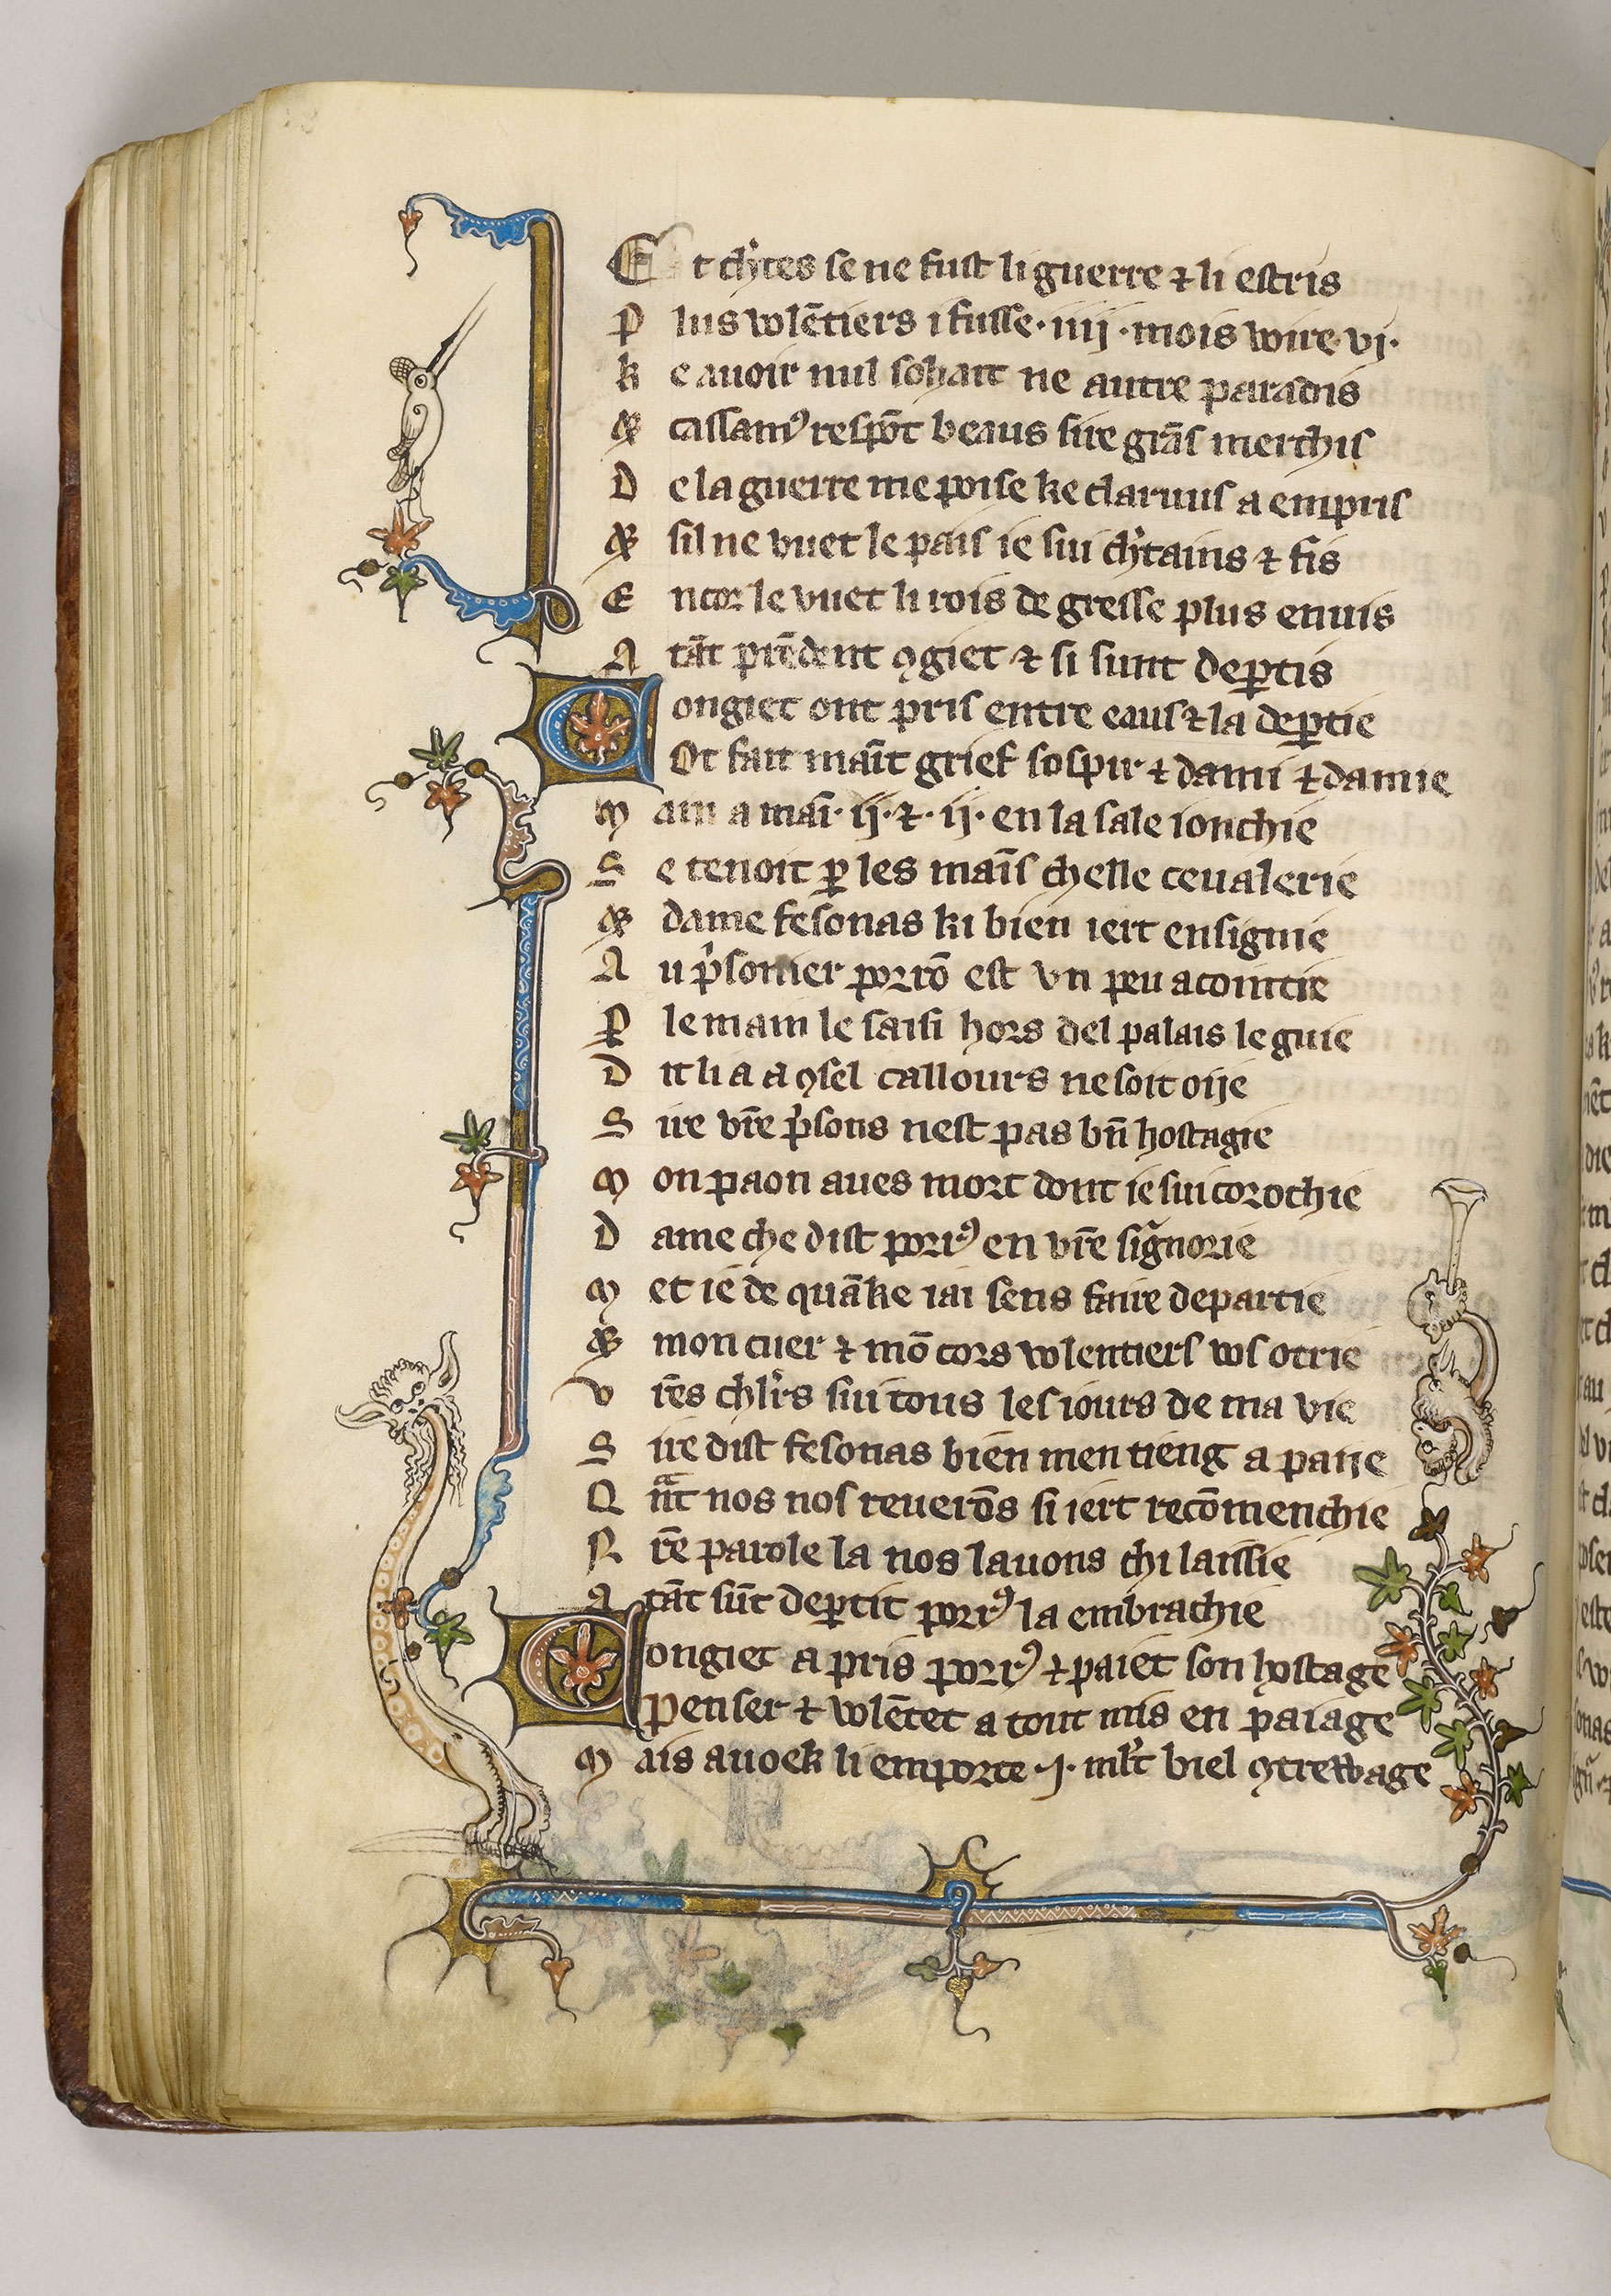 Et ch'tes se ne fust li guerre ⁊ li estris
Plus wlētiers i fusse · iiij · mois wire · vj ·
Ke auoir nul sohait ne autre paradis
⁊ cassamꝰ respōt beaus sire grās merchis
De la guerre me poise ke claruus a empris
⁊ sil ne vuet le pais ie sui ch'tains ⁊ fis
Encor le vuet li rois de gresse plus enuis
A tāt prēdent ꝯgiet ⁊ si sunt deꝑtis
Congiet ont pris entre eaus ⁊ la deꝑtie
Ot fait maīt grief sospir ⁊ dami ⁊ damie
Main a maī · ij · ⁊ · ij · en la sale ionchie
Se tenoit ꝑ les maīs chelle ceualerie
⁊ dame fesonas ki bien iert ensignie
Au p'sonier porrō est vn peu acointie
P le main le saisi hors del palais le guie
Dit li a a ꝯsel callours ne soit oije
Sire vr̄e p'sons nest pas bn̄ hostagie
Mon paon aues mort dont ie sui corochie
Dame che dist poriꝰ en vr̄e signorie
Met ie de quāke iai sens faire departie
⁊ mon cuer ⁊ mō cors wlentiers ws otrie
Vr̄es chl'rs sui tous les iours de ma vie
Sire dist fesonas bien men tieng a paije
Qn̄t nos nos reuerōs si iert recōmenchie
Nr̄e parole la nos lauons chi laissie
A tāt sūt deꝑtit poriꝰ la embrachie
Congiet a pris poriꝰ ⁊ paiet son hostage
Penser ⁊ wlētet a tout mis en paiage
Mais auoek li emporte · j · ml't biel ꝯtrewage